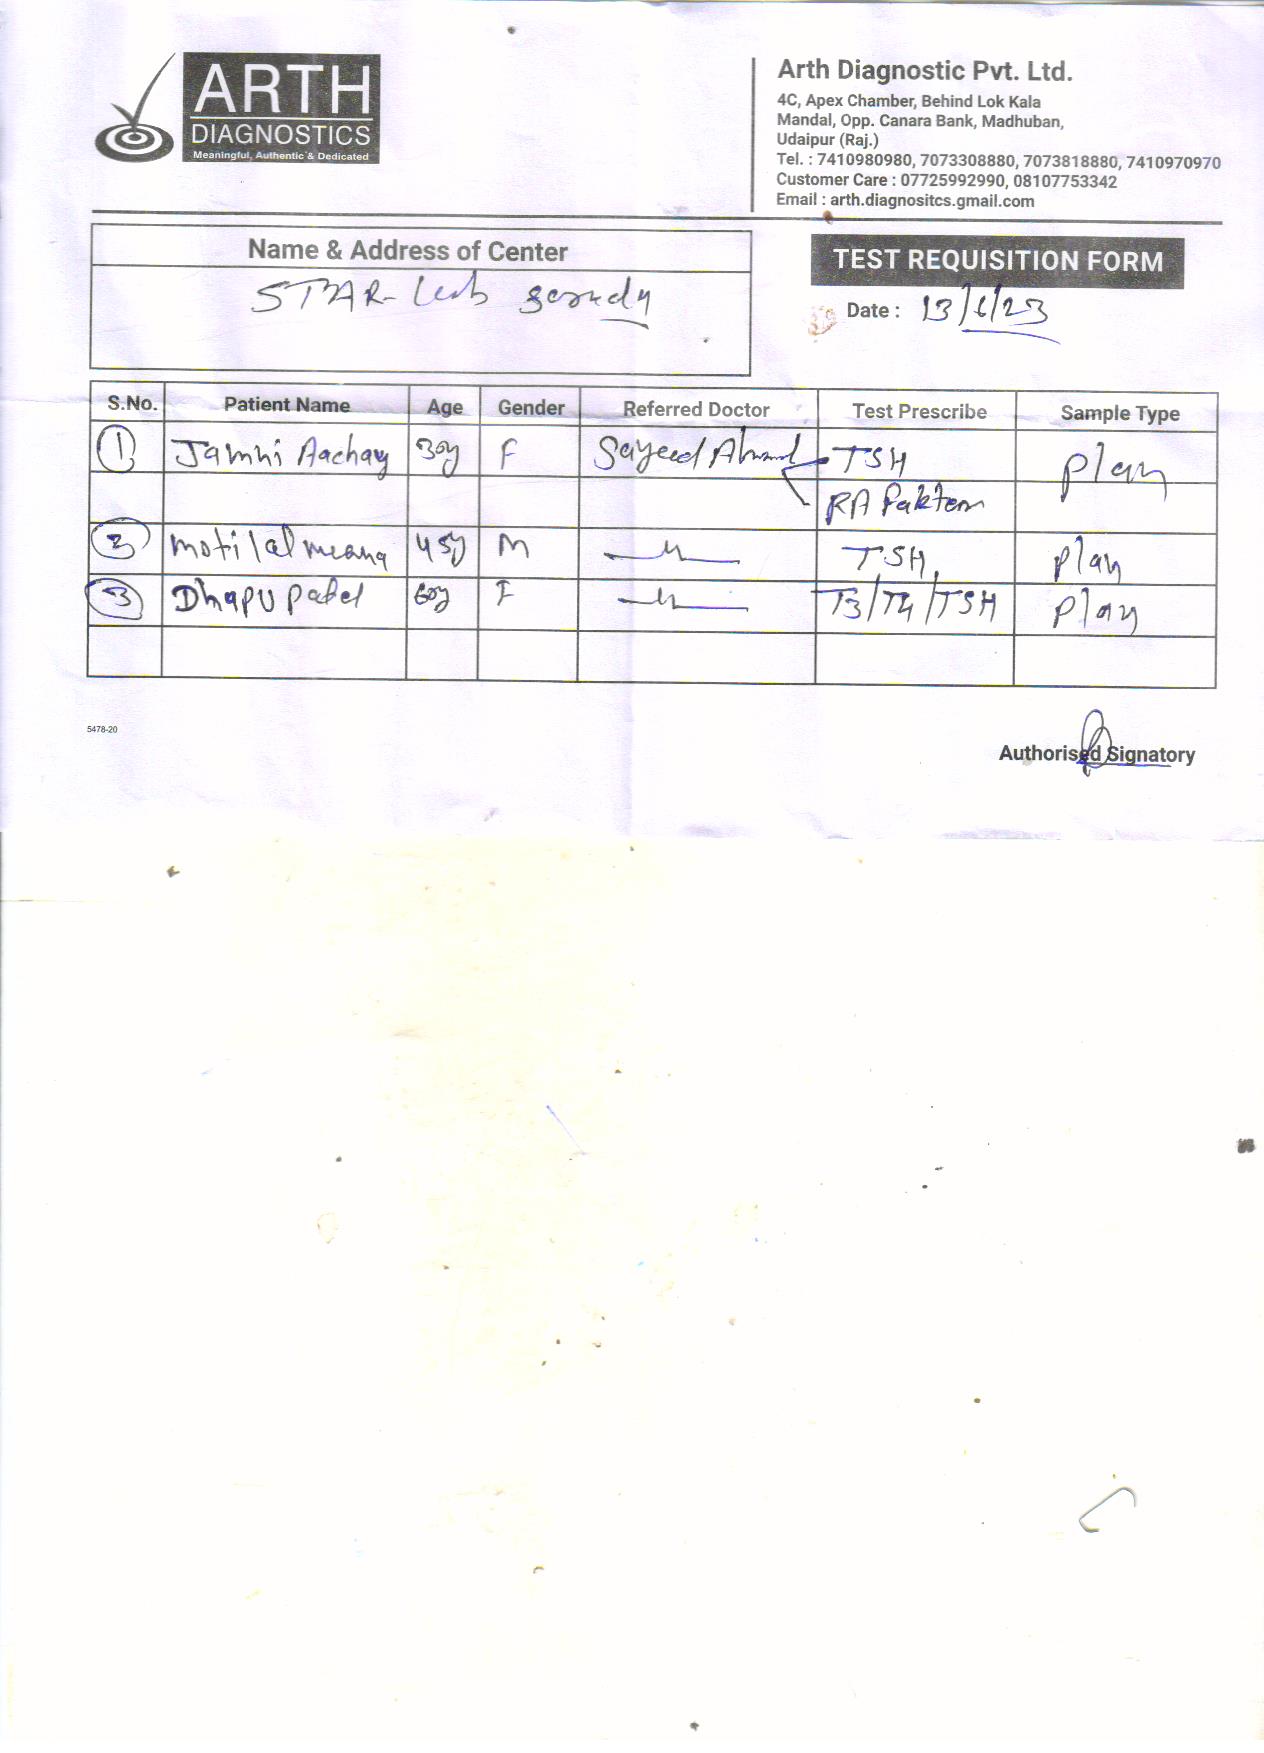 ARTH
DIAGNOSTICS
Meaningful, Authentic & Dedicated
Arth Diagnostic Pvt. Ltd.
4C, Apex Chamber, Behind Lok Kala
Mandal, Opp. Canara Bank, Madhuban,
Udaipur (Raj.)
Tel. : 7410980980, 7073308880, 7073818880, 7410970970
Customer Care : 07725992990, 08107753342
Email : arth.diagnositcs.gmail.com
Name & Address of Center
STAR-Lab
TEST REQUISITION FORM
Date : 13/6/23
S.No. Patient Name Age Gender Referred Doctor Test Prescribe Sample Type
1 Jamni 30y F Sayeed Ahmad TSH Plan
RA Faktem
2 motilal meena 45y M TSH Plan
3 Dhapu patel 60y F T3/T4/TSH Plan
5478-20
Authorised Signatory